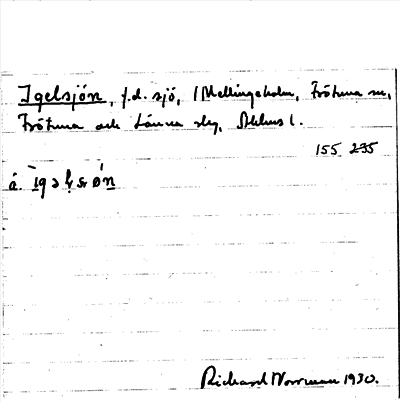 Igelsjön, f.d. sjö, i Mellingeholm, Frötuna sn,
Frötuna och Länna sly, Sthlms l.
155 235
Richard Norrman 1930.